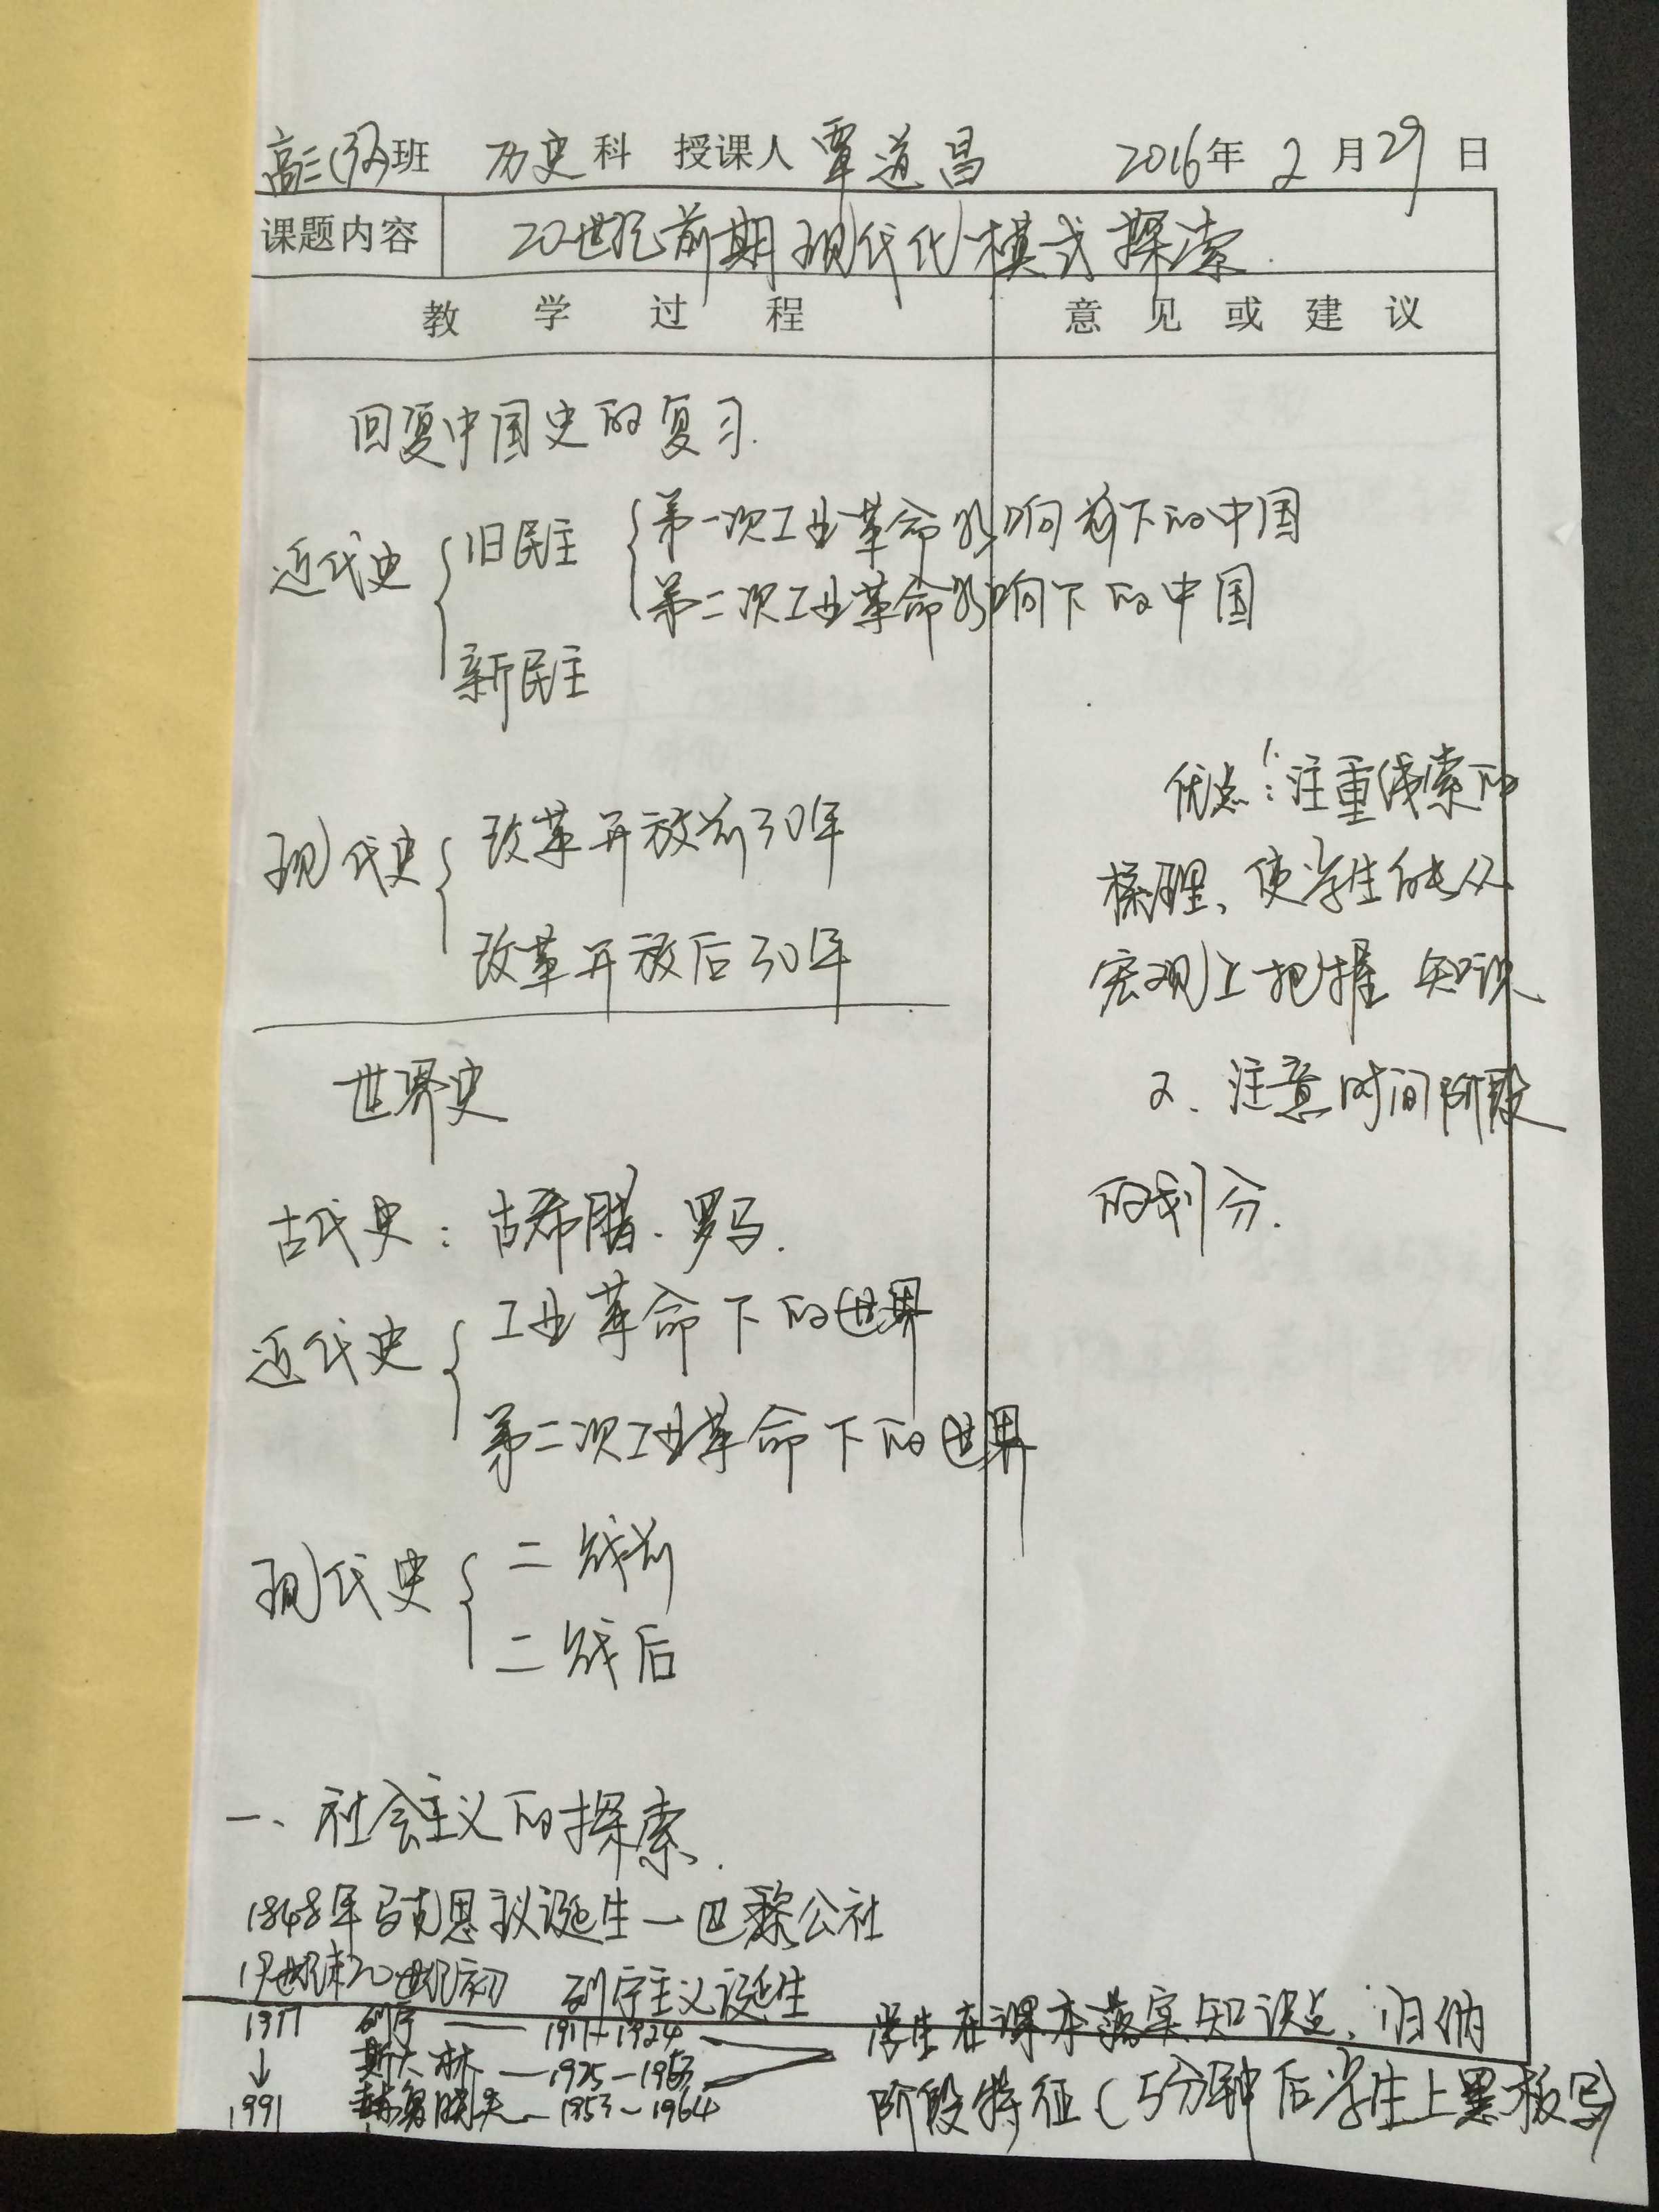 高三(32)班 历史科 授课人 覃道昌 2016年2月29日
课题内容 20世纪前期现代化模式探索.
教学过程 意见或建议
回复中国史的复习.
近代史 { 旧民主 { 第一次工业革命影响下的中国
第二次工业革命影响下的中国
新民主
现代史 { 改革开放前30年
改革开放后30年
世界史
古代史：古希腊、罗马.
近代史 { 工业革命下的世界
第二次工业革命下的世界
现代史 { 二战前
二战后
一、社会主义的探索.
1848年马克思主义诞生—巴黎公社
19世纪末20世纪初 列宁主义诞生
1917 列宁 —— 1917-1924
↓ 斯大林 — 1925-1953
1991 赫鲁晓夫 - 1953~1964
优点：1.注重线索的
梳理、使学生能从
宏观上把握知识
2、注意时间阶段
的划分.
学生在课本落实知识点、归纳
阶段特征(5分钟后学生上黑板写)